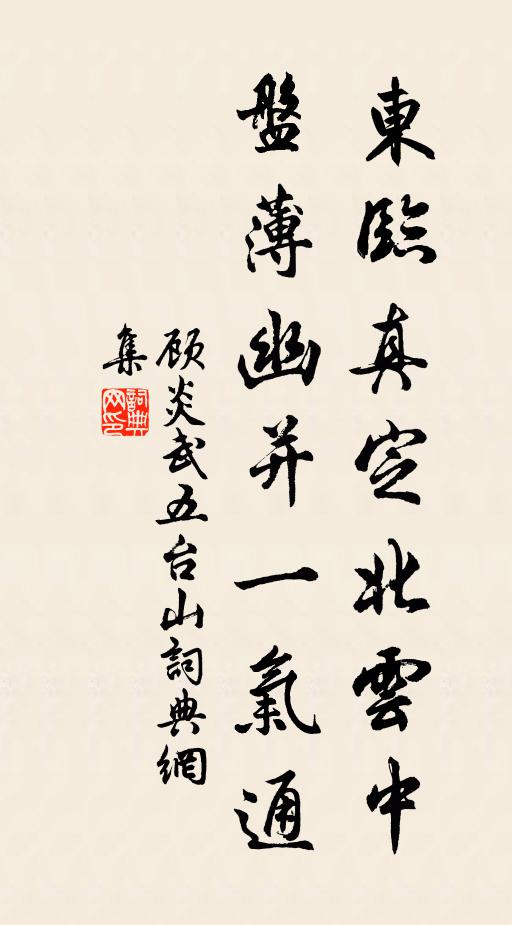 東臨真定北雲中
盤薄幽并一氣通
顧炎武五台山詞典網
集
詞典
网印